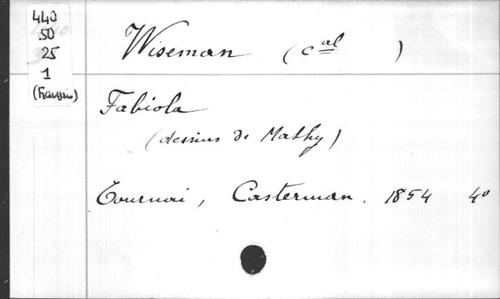 440
50
25
1
(français)
Wiseman (cal )
Fabiola
(dessins de Mathy)
Tournai, Casterman. 1854 4o